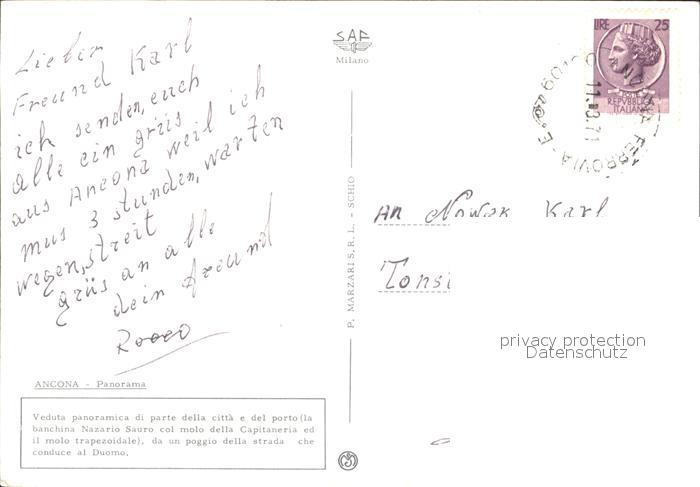 Liebir
Freund Karl
ich senden, euch
alle ein grüs
aus Ancona weil ich
mus 3 stunden, warten
wegen, streit
grüs an alle
dein freund
Rocco
ANCONA - Panorama
Veduta panoramica di parte della città e del porto (la
banchina Nazario Sauro col molo della Capitaneria ed
il molo trapezoidale), da un poggio della strada che
conduce al Duomo.
SAF
Milano
P. MARZARI S.R.L. - SCHIO
LIRE 25
REPVBBLICA
ITALIANA
60100 ANCONA FERROVIA
An Nowak Karl
Tonsi
privacy protection
Datenschutz